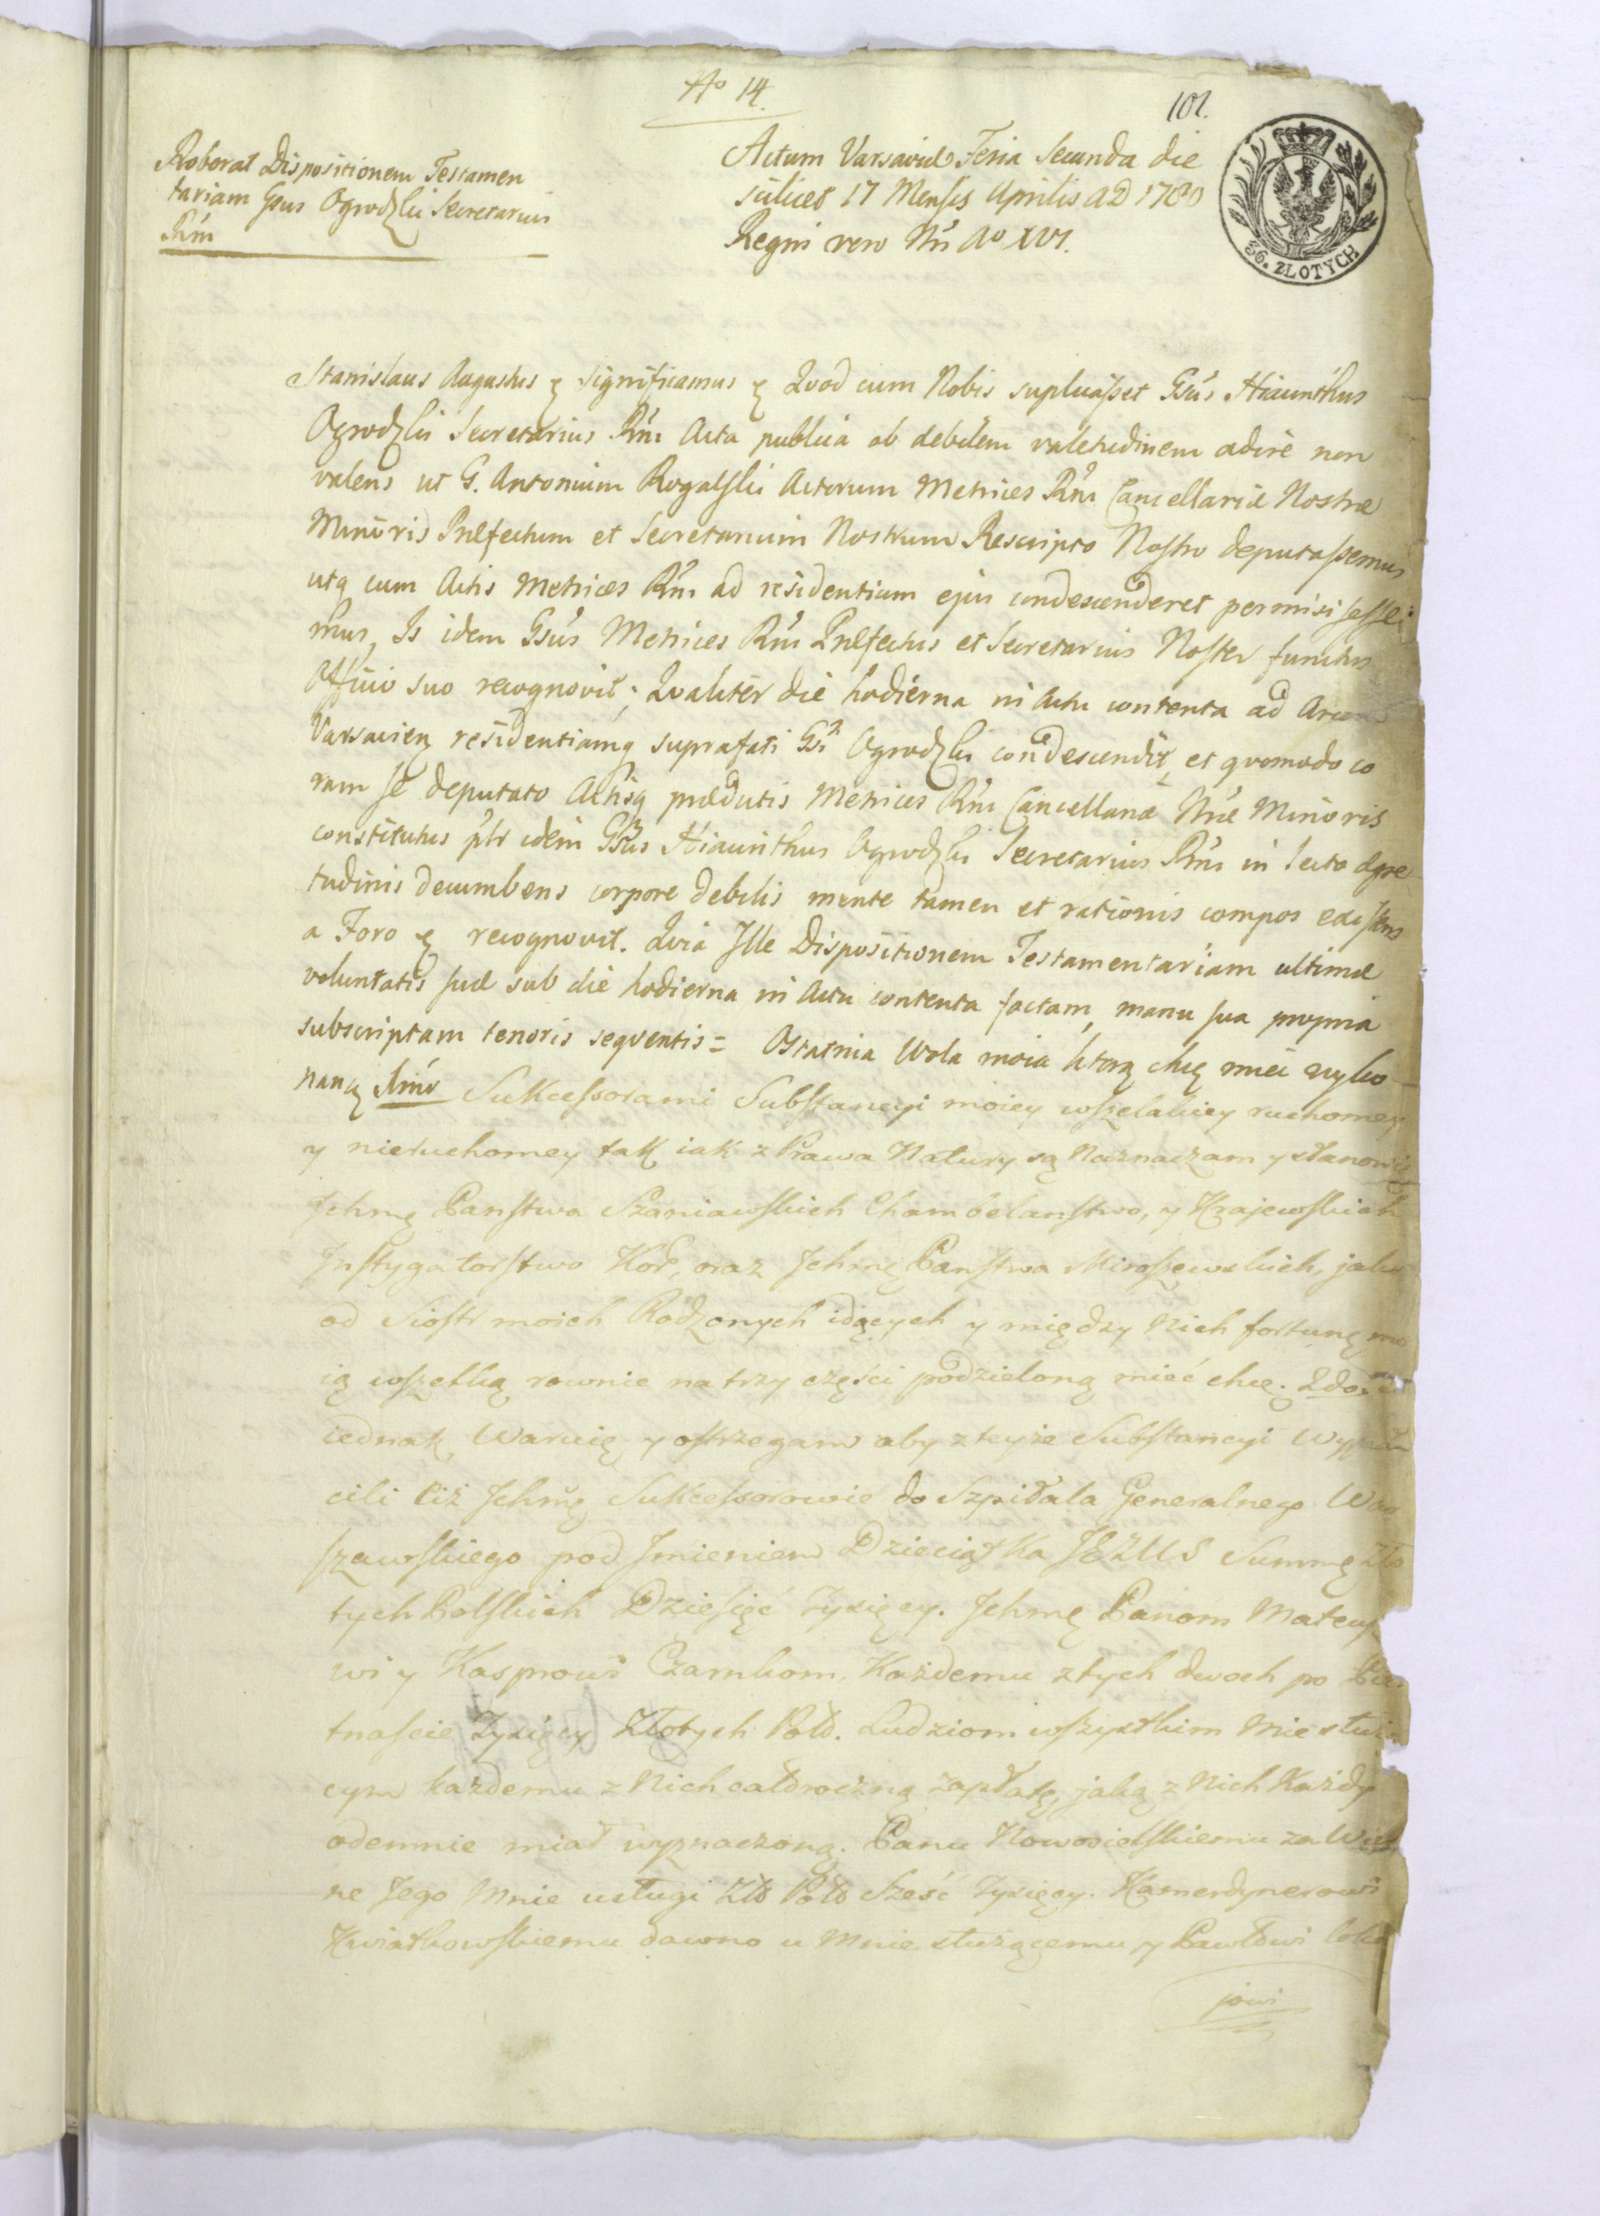 No 14.
101.
Roborat Dispositionem Testamen
tariam Gsus Ogrodzki Secretarius
Rni
Actum Varsaviæ Feria Secunda die
scilicet 17 Mensis Aprilis AD 1780
Regni vero Nri Ao XVI.
36. ZŁOTYCH
Stanislaus Augustus Significamus Quod cum Nobis suplicasset Gsus Hiacinthus
Ogrodzki Secretarius Rni Acta publica ob debilem valetudinem adire non
valens ut G. Antonium Rogalski Actorum Metrices Rni Cancellariæ Nostræ
Minoris Præfectum et Secretarium Nostrum Rescripto Nostro deputassemus
utq cum Actis Metrices Rni ad residentiam ejus condescenderet permisisse
mus, Is idem Gsus Metrices Rni Præfectus et Secretarius Noster functus
Officio suo recognovit; Qualiter die hodierna in Actu contenta ad
Varsavien residentiamq suprafati Gsi Ogrodzki condescendit, et quomodo co
ram se deputato Actisq prædictis Metrices Rni Cancellariæ Nræ Minoris
constitutus plr idem Gsus Hiacinthus Ogrodzki Secretarius Rni in lecto ægri
tudinis decumbens corpore debilis mente tamen et rationis compos existens
a Foro recognovit. Quia Ille Dispositionem Testamentariam ultimæ
voluntatis suæ sub die hodierna in Actu contenta factam, manu sua propria
subscriptam tenoris sequentis = Ostatnia Wola moia którą chcę mieć wyko
naną Sukcessorami Substancyi moiey wszelakiey ruchomey
y nieruchomey tak iak z Prawa Natury są Naznaczam y stanowię
Jchmę Państwa Szaniawskich Chambelanstwo, y Krajewskich
Instygatorstwo Kor, oraz Jchmę Państwa Miroszewskich, jako
od Siostr moich Rodzonych idących y między Nich fortunę mo
ią wszelką rownie na trzy części podzieloną mieć chcę.
iednak Waruię y ostrzegam aby z teyże Substancyi
cili ciż Jchmę Sukcessorowie do Szpitala Generalnego War
szawskiego pod Imieniem Dzieciątka JEZUS Summę Zło
tych Polskich Dziesięć Tysięcy. Jchmę Panom Mateuszo
wi y Kasprowi Czarnkom, Każdemu z tych dwoch po Pię
tnascie Tysięcy Złotych Pols. Ludziom wszystkim Mnie służą
cym każdemu z Nich całoroczną zapłatę, jaką z Nich Każdy
odemnie miał wyznaczoną. Panu Nowosielskiemu za
ne Jego Mnie usługi Zło Pols Sześć Tysięcy. Kamerdynerowi
Kwiatkowskiemu dawno u Mnie służącemu y Pawłowi Loka
jowi